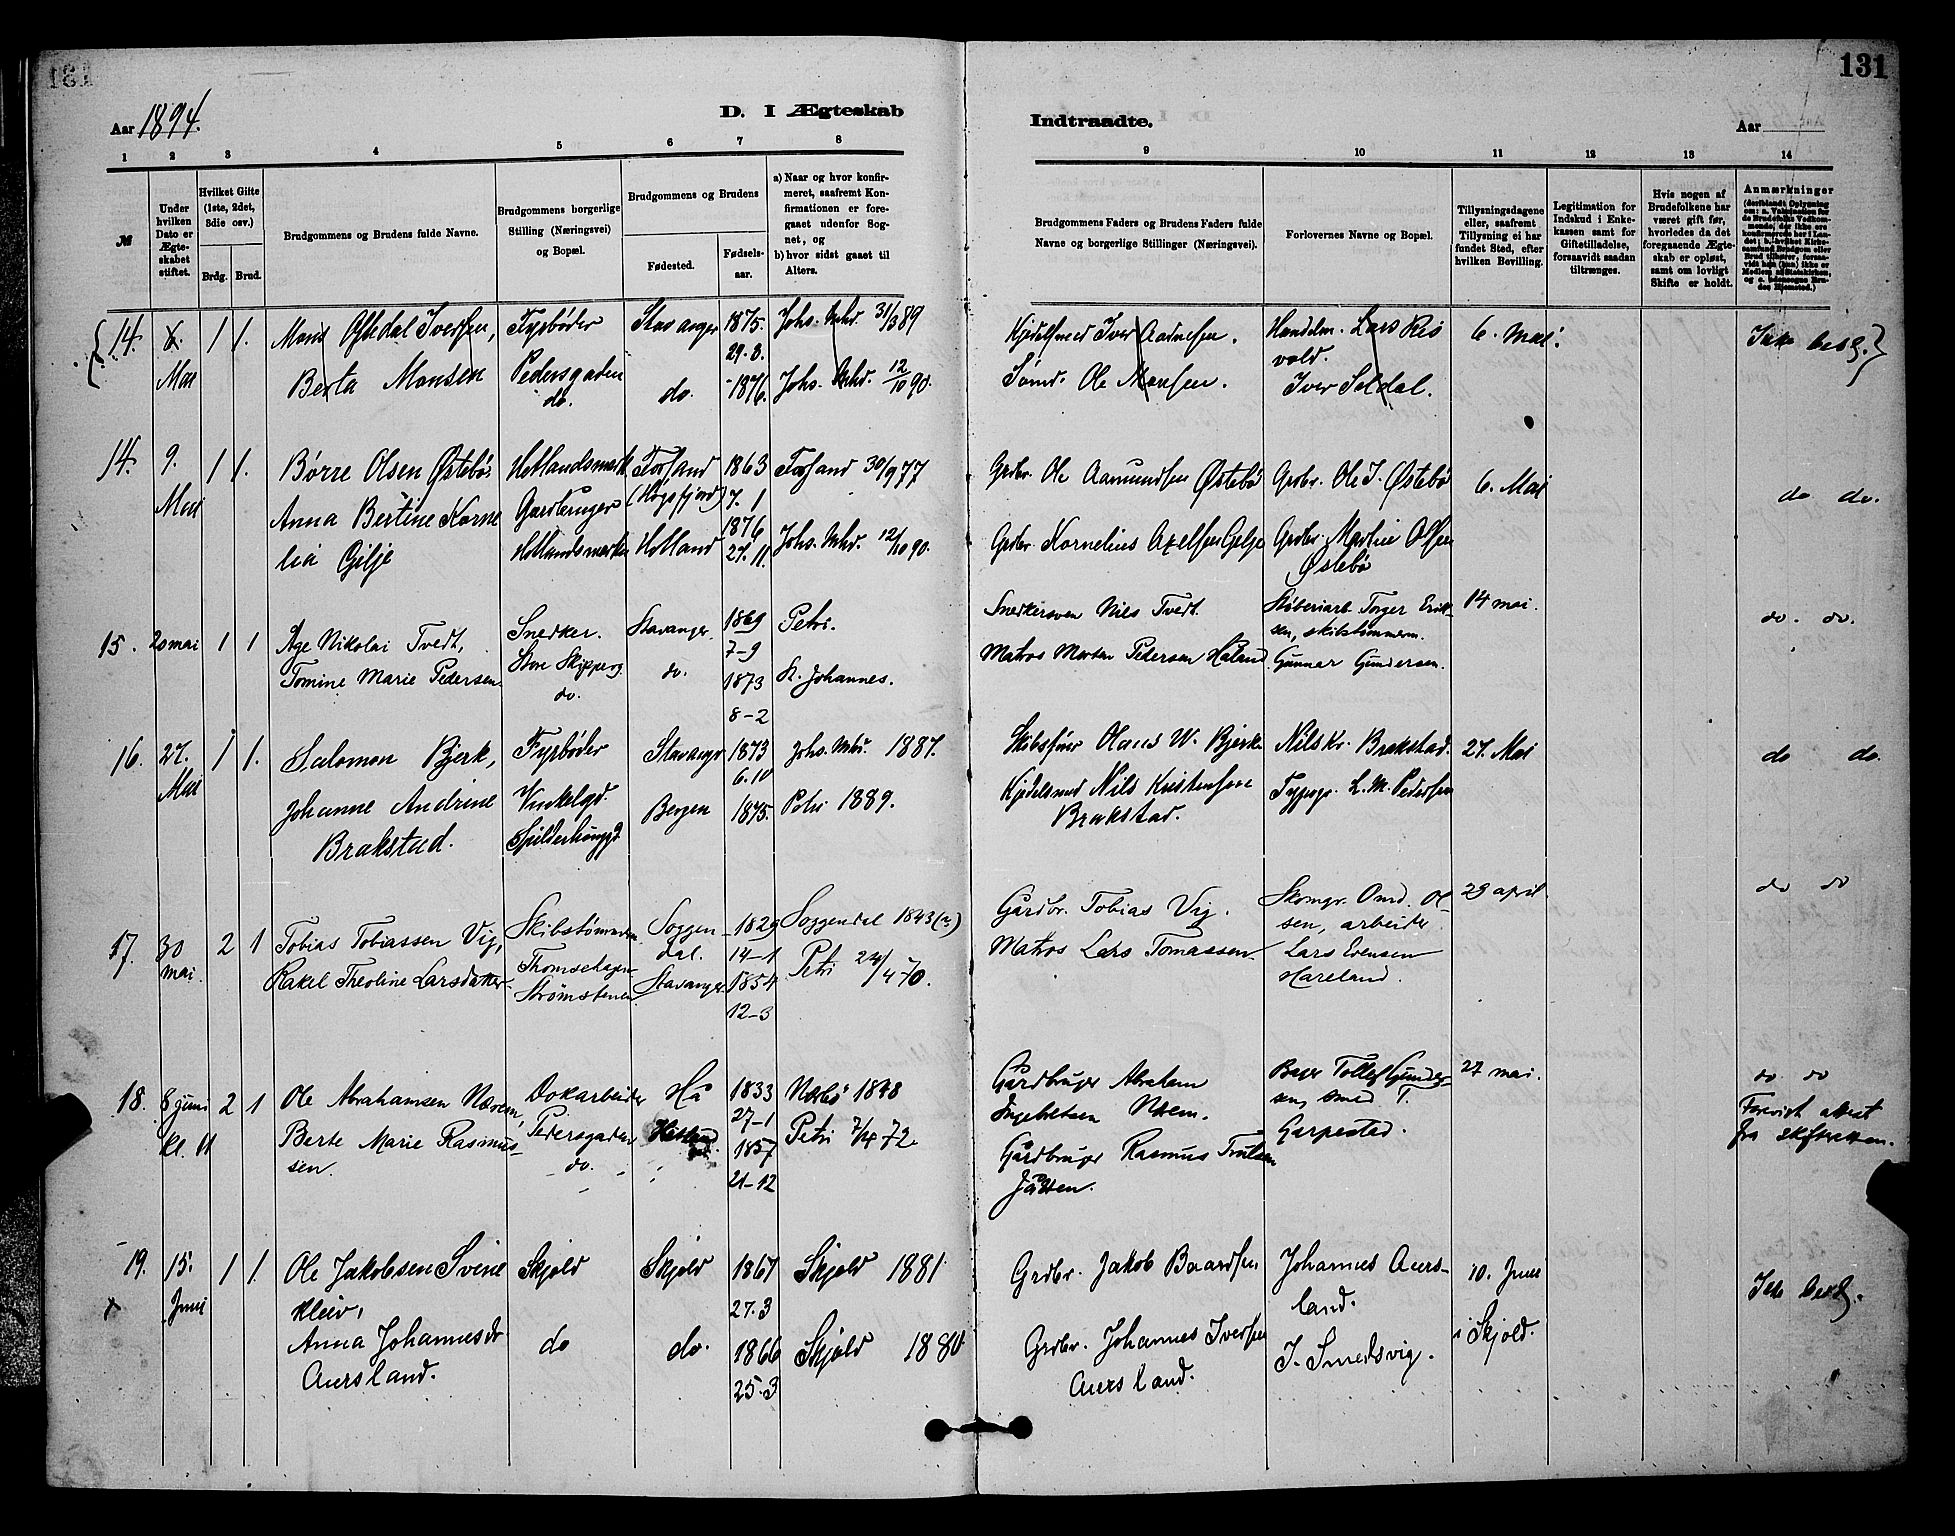 131
Aar 1894.
D. I Ægteskab
Indtraadte.
Aar
1 2 3 4 5 6 7 8
9 10 11 12 13 14
№
Under hvilken Dato er Ægteskabet stiftet.
Hvilket Gifte (1ste, 2det, 3die osv.)
Brdg. Brud.
Brudgommens og Brudens fulde Navne.
Brudgommens borgerlige Stilling (Næringsvei) og Bopæl.
Brudgommens og Brudens
Fødested.
Fødselsaar.
a) Naar og hvor konfirmeret, saafremt Konfirmationen er foregaaet udenfor Sognet, og
b) hvor sidst gaaet til Alters.
Brudgommens Faders og Brudens Faders fulde Navne og borgerlige Stillinger (Næringsvei).
Forlovernes Navne og Bopæl.
Tillysningsdagene eller, saafremt Tillysning ei har fundet Sted, efter hvilken Bevilling.
Legitimation for Indskud i Enkekassen samt for Giftetilladelse, forsaavidt saadan tiltrænges.
Hvis nogen af Brudefolkene har været gift før, hvorledes da det foregaaende Ægteskab er opløst, samt om lovligt Skifte er holdt.
Anmærkninger
14. 6. Mai 1 1.
Mons Oftedal Iversen,
Berta Monsen
Fyrbøder
Pedersgaden
do.
Stavanger
do.
1875.
29.3.
1876.
Johs. Mhd. 31/3 89
Johs. Mhd. 12/10 90.
Kjedelsmed Iver Aadnesen.
Sømd. Ole Monsen.
Handelm. Lars Risvold.
Iver Seldal.
6. Mai
Ikke besg.
14. 9. Mai 1 1.
Børre Olsen Østebø
Anna Bertine Kornelia Gilje
Hetlandsmark
Gardbruger
Hetlandsmarken
Forsand
(Høgsfjord)
Hetland
1863
7. 1
1876
27. 11.
Forsand 30/9 77
Johs. Mhd. 12/10 90.
Grdbr. Ole Aamundsen Østebø
Grdbr. Kornelius Axelsen Gilje
Grdbr. Ole I. Østebø
Grdbr. Martin Olsen Østebø
6. Mai
do do.
15. 20 mai 1 1
Åge Nikolai Tvedt,
Tomine Marie Pedersen
Snedker.
Store Skipperg.
do.
Stavanger.
do.
1869
7-9
1873
8-2
Petri.
St. Johannes.
Snedkersven Nils Tvedt.
Matros Morten Pedersen Haland
Støberiarb. Torger Eriksen, skibstømmerm.
Gunnar Gundersen.
14 mai.
do. do.
16. 27. Mai 1 1.
Salomon Bjerk,
Johanne Andrine
Brakstad.
Fyrbøder
Vinkelgd.
Spilderhauggd.
Stavanger
Bergen
1873
6.10
1875.
Johs. Mhd. 1887.
Petri 1889.
Skibsfører Olaus W. Bjerk
Kjedelsmed Nils Kristensen
Brakstad.
Nils Kr. Brakstad.
Typogr. L. M. Pedersen
27. Mai
do do.
17. 30 mai. 2 1
Tobias Tobiassen Vig,
Rakel Theoline Larsdatter
Skibstømmerm.
Thomsehagen
Strømstenen
Soggendal.
Stavanger
1829
14-1
1854
12-3
Soggendal 1843(?)
Petri 24/4 70.
Gardbr. Tobias Vig.
Matros Lars Tomassen.
Skomgr. Omd. Olsen, arbeider
Lars Evensen
Hareland.
29 april.
do do
18. 8 juni kl. 11 2 1
Ole Abrahamsen Nærem,
Berte Marie Rasmussen.
Dokarbeider
Pedersgaden
do.
Hå
Hetland
1833
27-1
1857
21-12
Nærbø 1848
Petri 7/4 72.
Gårdbruger Abraham
Ingebretsen Nærem.
Gårdbruger Rasmus Trulsen
Jåtten.
Bager Tollef Gundersen, smed T.
Garpestad.
27 mai.
do do
Forevist attest
fra skifteretten.
19. 15. Juni 1 1.
Ole Jakobsen Svinekleiv,
Anna Johannesdr
Auersland.
Skjold
do
Skjold
do.
1867
27.3
1866
25.3
Skjold 1881
Skjold 1880
Grdbr. Jakob Baardsen
Grdbr. Johannes Iversen
Auersland.
Johannes Auersland.
I. Smedsvig.
10. Juni
i Skjold.
Ikke besg.